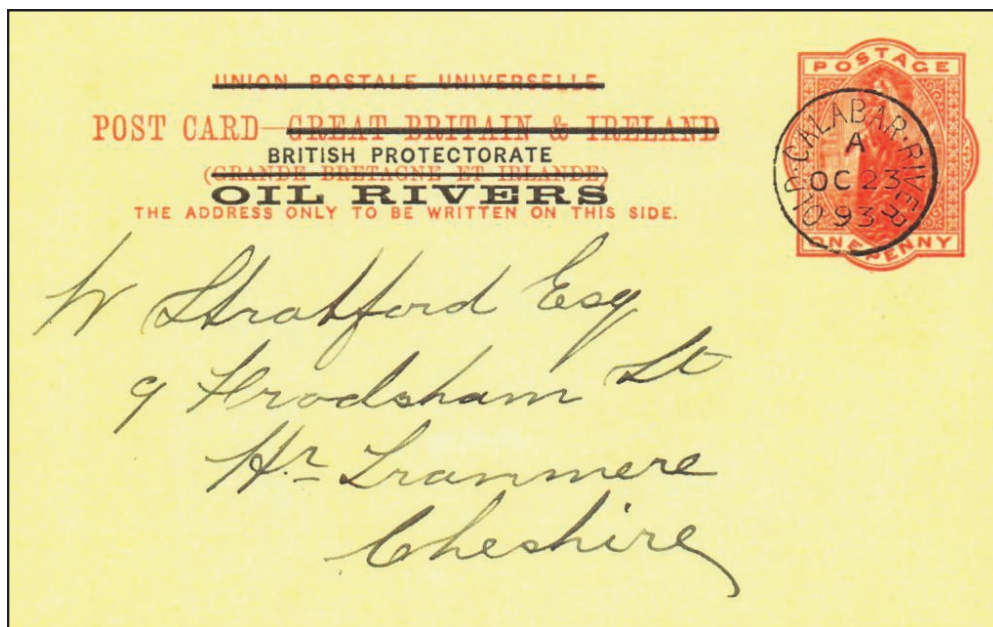 UNION POSTALE UNIVERSELLE
POST CARD—GREAT BRITAIN & IRELAND
BRITISH PROTECTORATE
(GRANDE BRETAGNE ET IRLANDE)
OIL RIVERS
THE ADDRESS ONLY TO BE WRITTEN ON THIS SIDE.
POSTAGE
ONE PENNY
OLD·CALABAR·RIVER
A
OC 23
93
W Stratford Esq
9 Frodsham St
Hr Tranmere
Cheshire